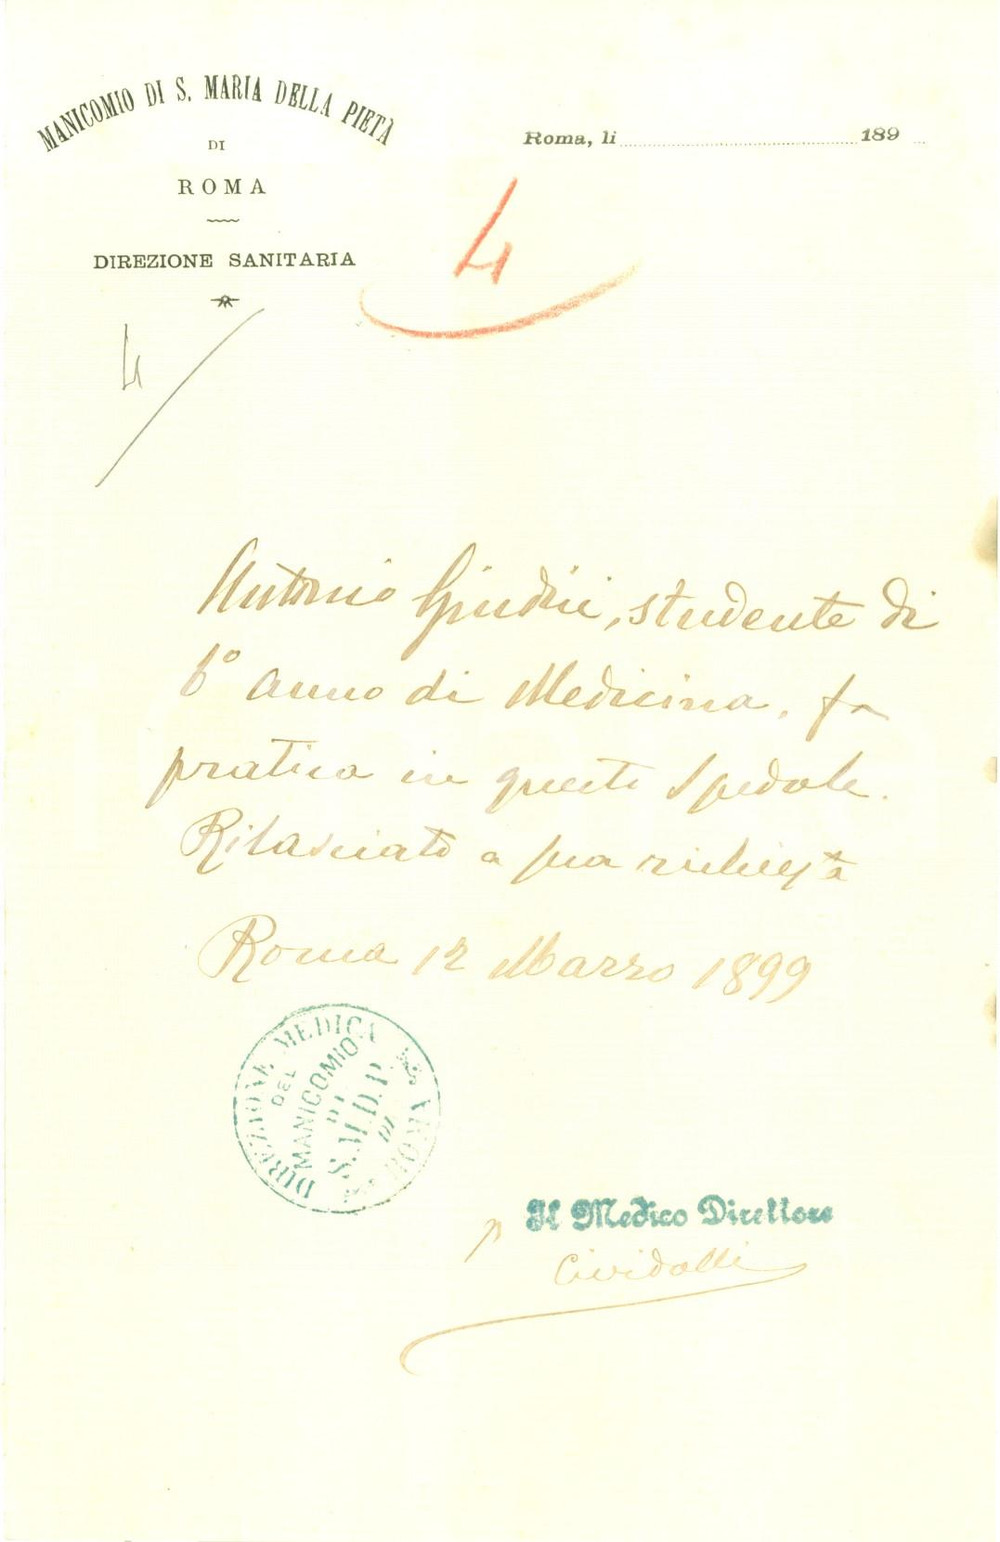 MANICOMIO DI S. MARIA DELLA PIETÀ
DI
ROMA
DIREZIONE SANITARIA
Roma, li 189
4
4
Antonio Giudici, studente di
6° anno di Medicina, fa
pratica in questo Spedale.
Rilasciato a sua richiesta
Roma 12 Marzo 1899
DIREZIONE MEDICA
DEL
MANICOMIO
DI
S. M. D. P.
DI
ROMA
p Il Medico Direttore
Cividalli